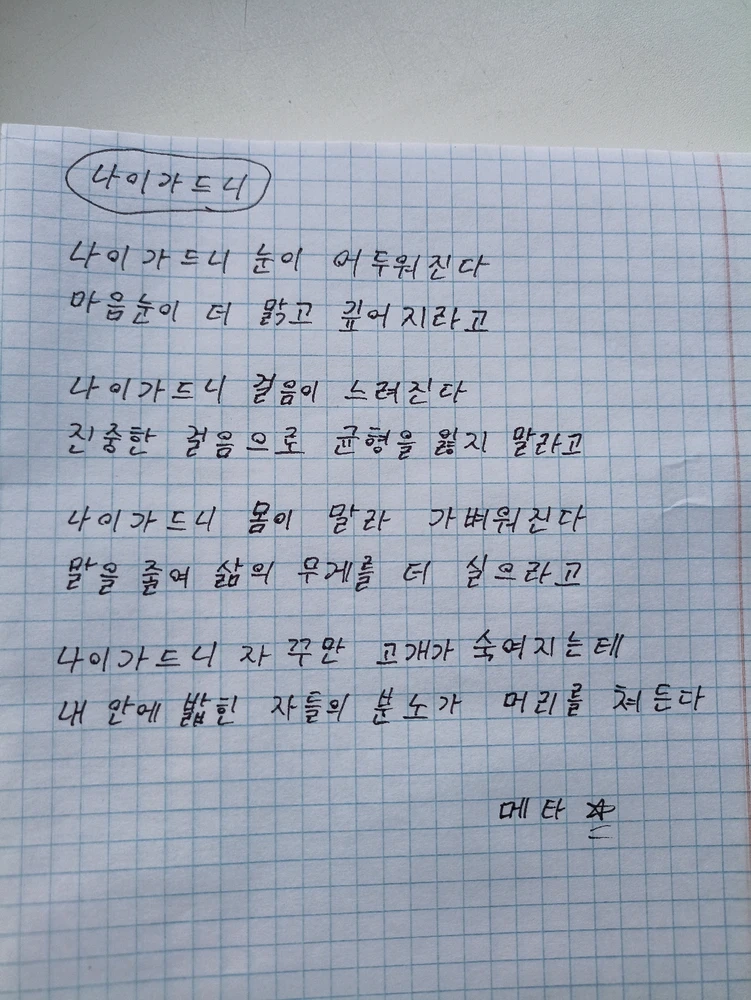 나이가드니
나이가드니 눈이 어두워진다
마음눈이 더 맑고 깊어지라고
나이가드니 걸음이 느려진다
진중한 걸음으로 균형을 잃지 말라고
나이가드니 몸이 말라 가벼워진다
말을 줄여 삶의 무게를 더 실으라고
나이가드니 자꾸만 고개가 숙여지는데
내 안에 밟힌 자들의 분노가 머리를 쳐든다
메타